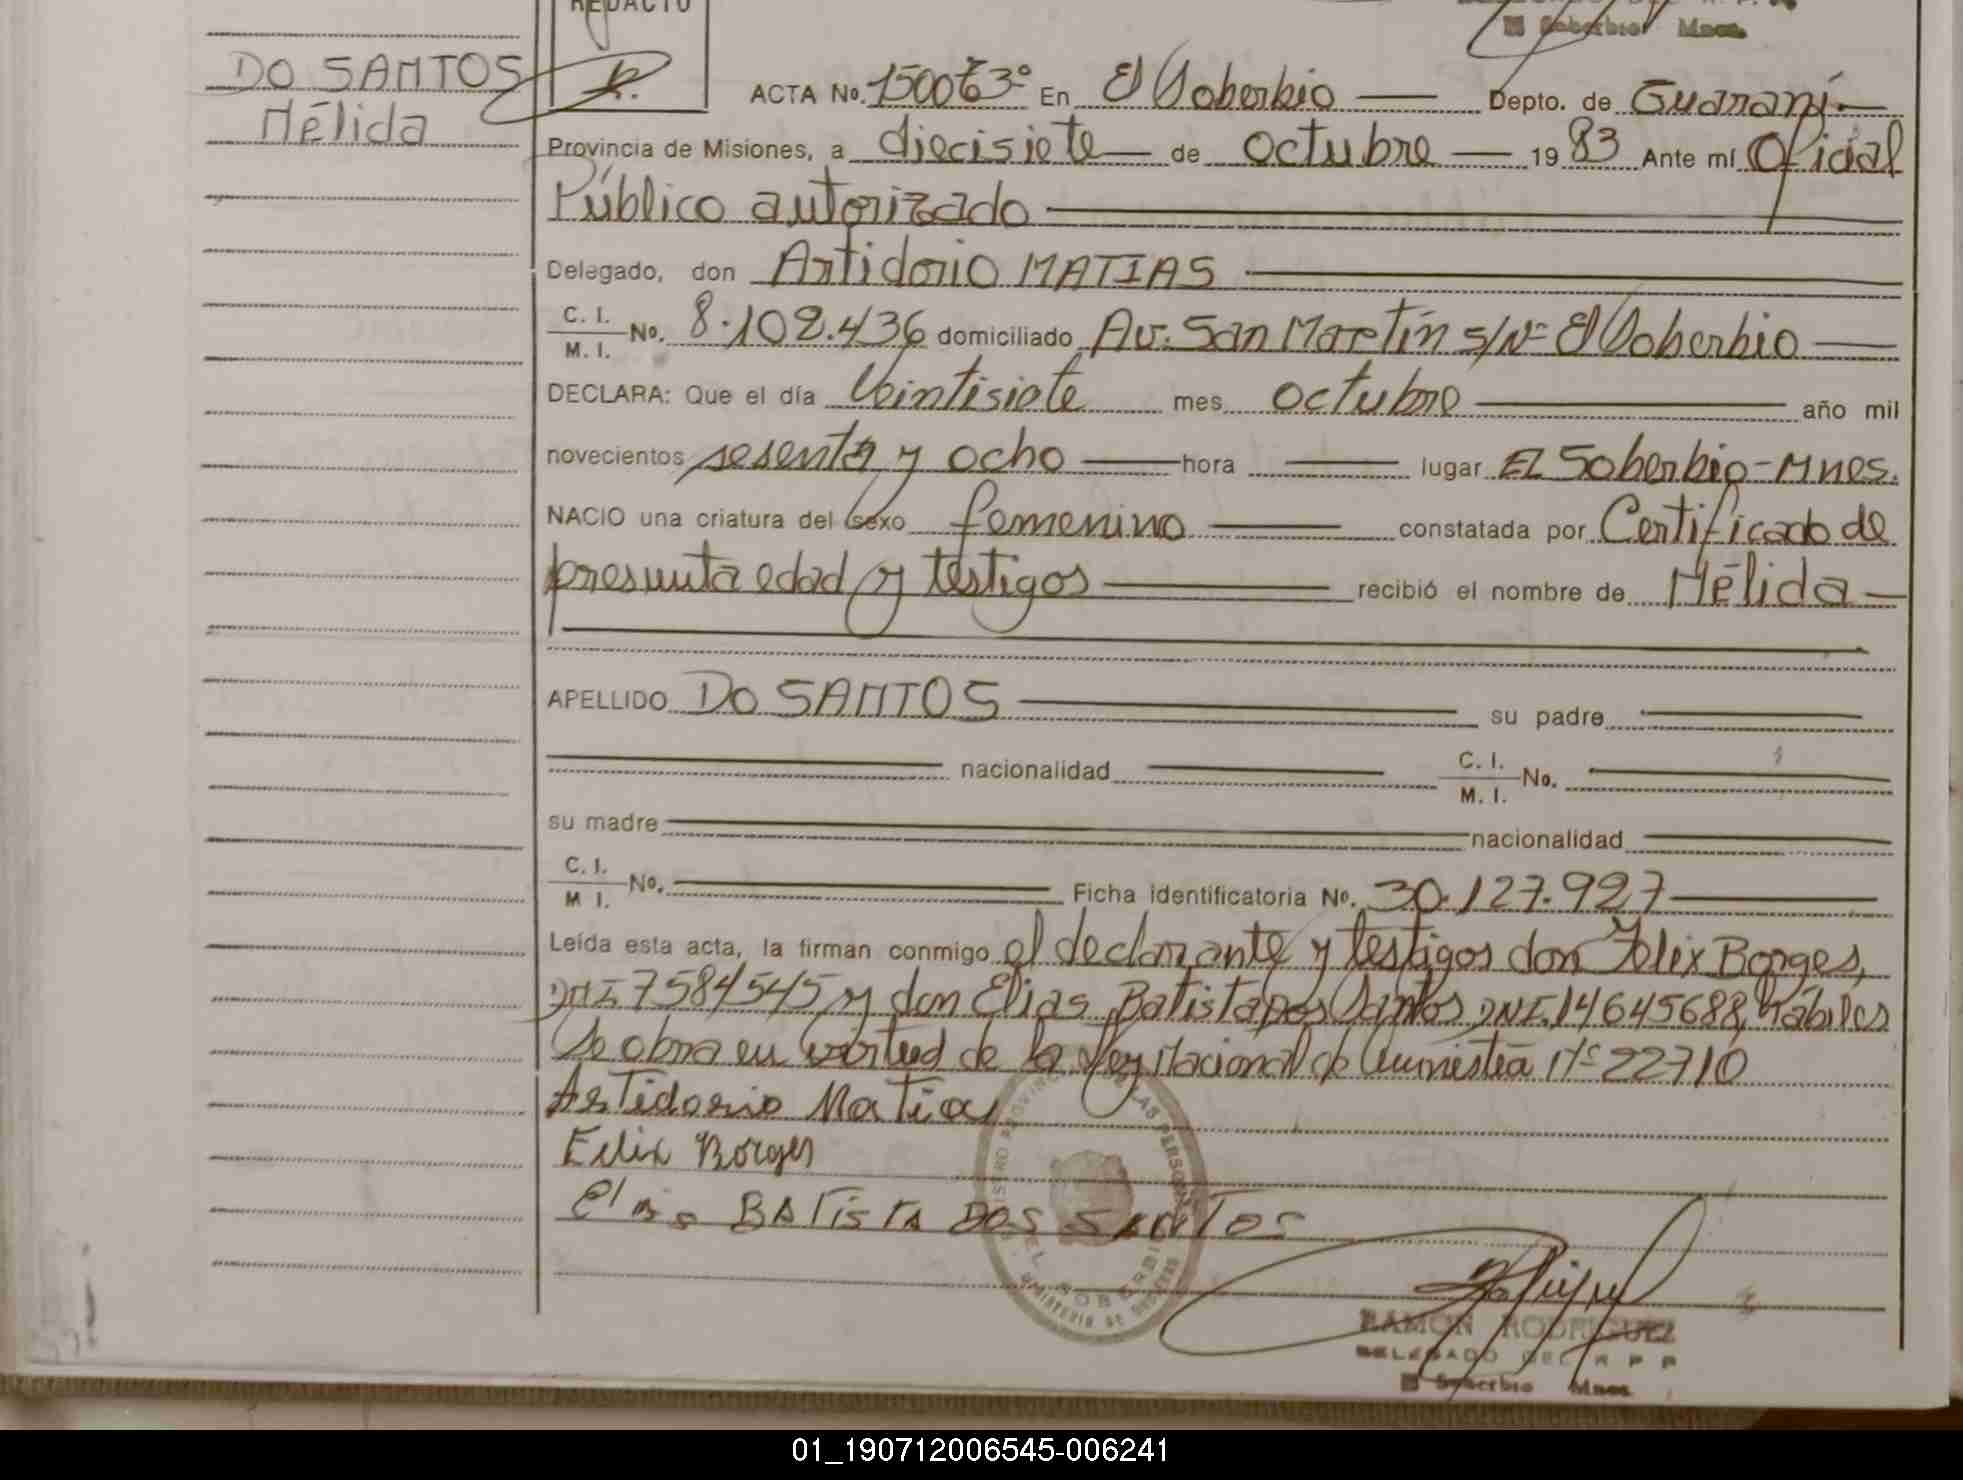 REDACTO
El Soberbio Mnes.
DO SANTOS
Nélida
ACTA No. 150 Tº 3º En El Soberbio Depto. de Guaraní
Provincia de Misiones, a diecisiete de octubre 1983 Ante mí Oficial
Público autorizado
Delegado, don Antidorio MATIAS
C. I. / M. I. No. 8.102.436 domiciliado Av. San Martín s/Nº El Soberbio
DECLARA: Que el día Veintisiete mes octubre año mil
novecientos sesenta y ocho hora lugar El Soberbio-Mnes.
NACIO una criatura del sexo femenino constatada por Certificado de
presunta edad y testigos recibió el nombre de Nélida
APELLIDO DO SANTOS su padre
nacionalidad C. I. / M. I. No.
su madre nacionalidad
C. I. / M I. No. Ficha identificatoria No. 30.127.927
Leída esta acta, la firman conmigo el declarante y testigos don Felix Borges,
DNI 7584545 y don Elias Batista Dos Santos DNI. 14645688, hábiles
Se obra en virtud de la Ley Nacional de Amnistía Nº 22710
Antidorio Matias
Felix Borges
Elias BATISTA DOS SANTOS
RAMON RODRIGUEZ
DELEGADO DEL R P P
El Soberbio Mnes.
01_190712006545-006241